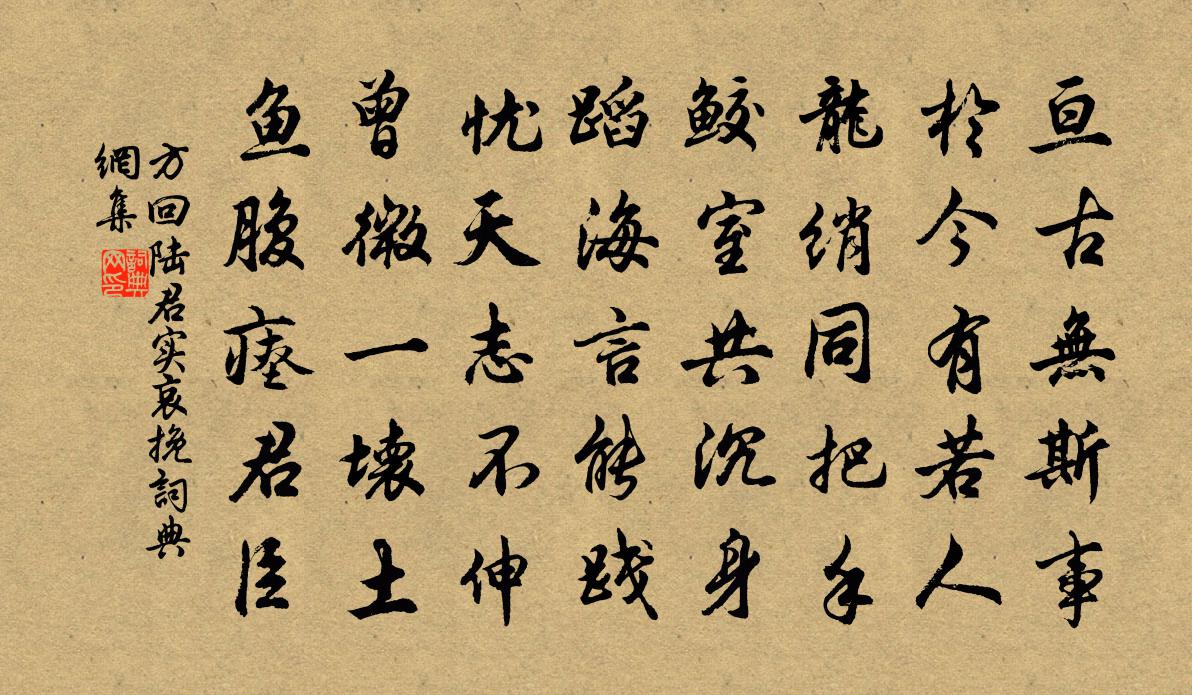 亘古無斯事
於今有若人
龍綃同把手
鮫室共沉身
蹈海言能踐
忧天志不伸
曾微一壞土
鱼腹瘗君臣
方回陆君实哀挽詞典
網集
詞典
网印